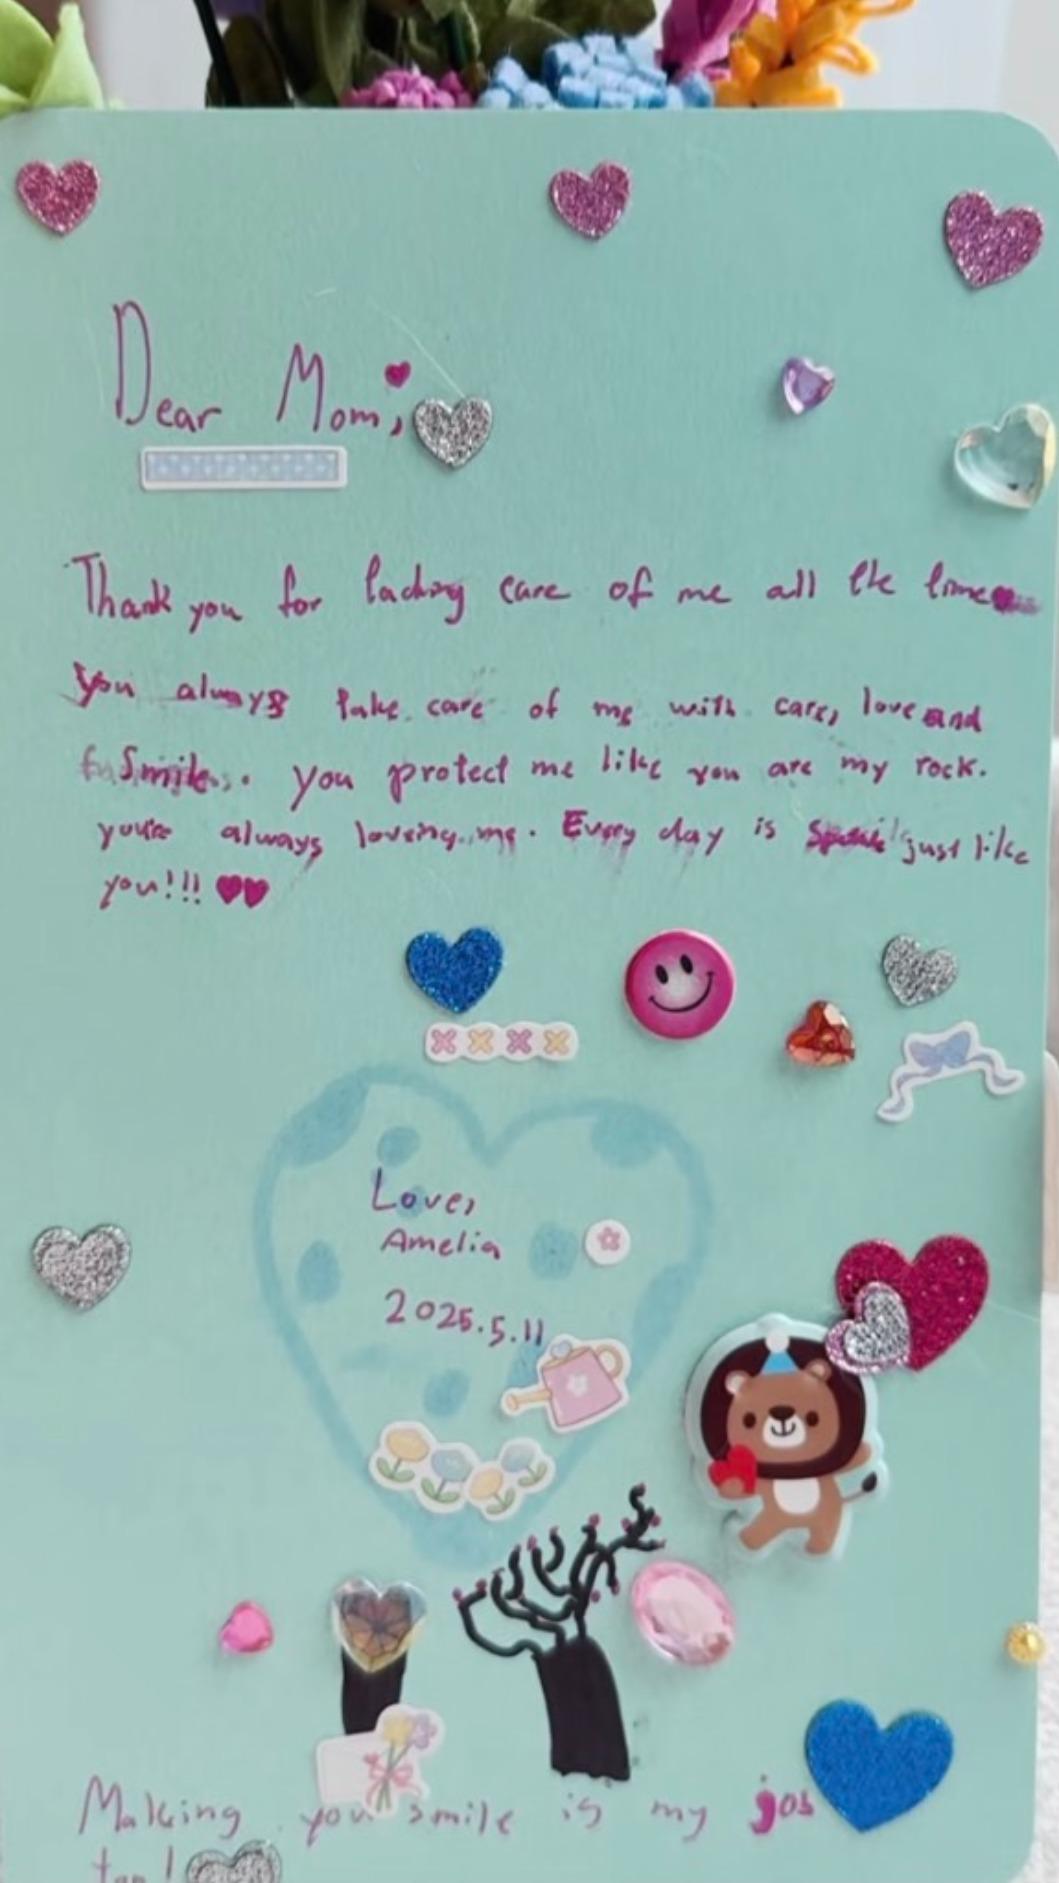 Dear Mom,
Thank you for taking care of me all the time
you always take care of me with care, love and
Smile. you protect me like you are my rock.
you're always loving me. Every day is just like
you!!!
Love,
Amelia
2025.5.11
Making you smile is my job
too!